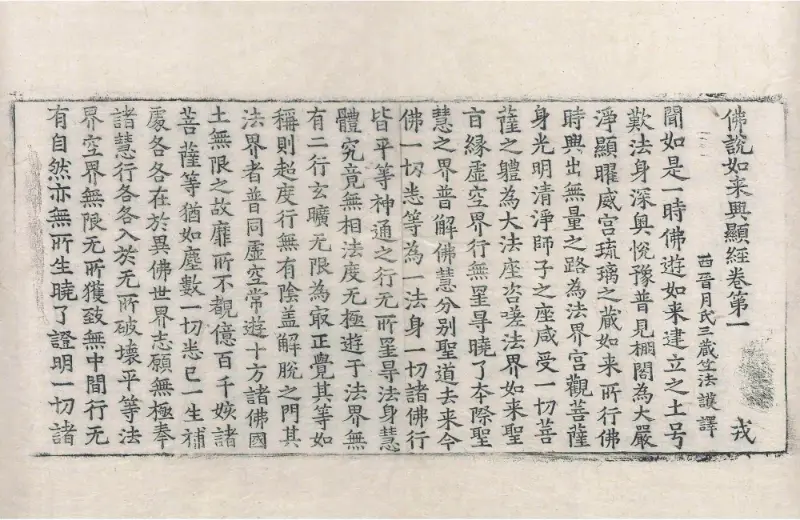 佛說如来興顯經卷第一 戎
西晉月氏三蔵竺法護譯
聞如是一時佛遊如来建立之土号
歎法身深奥悅豫普見棚閣為大嚴
淨顯曜威宫琉璃之蔵如来所行佛
時興出無量之路為法界宫觀菩薩
身光明清淨師子之座咸受一切菩
薩之體為大法座咨嗟法界如来聖
旨縁虚空界行無罣㝵曉了夲際聖
慧之界普解佛慧分别聖道去来今
佛一切悉等為一法身一切諸佛行
皆平等神通之行无所罣㝵法身慧
體究竟無相法度无極遊于法界無
有二行玄曠无限為㝡正覺其等如
稱則超度行無有陰盖解脫之門其
法界者普同虚空常遊十方諸佛國
土無限之故靡所不覩億百千姟諸
菩薩等猶如塵數一切悉已一生補
處各各在於異佛世界志願無極奉
諸慧行各各入於无所破壞平等法
界空界無限无所獲致無中間行无
有自然亦無所生曉了證明一切諸